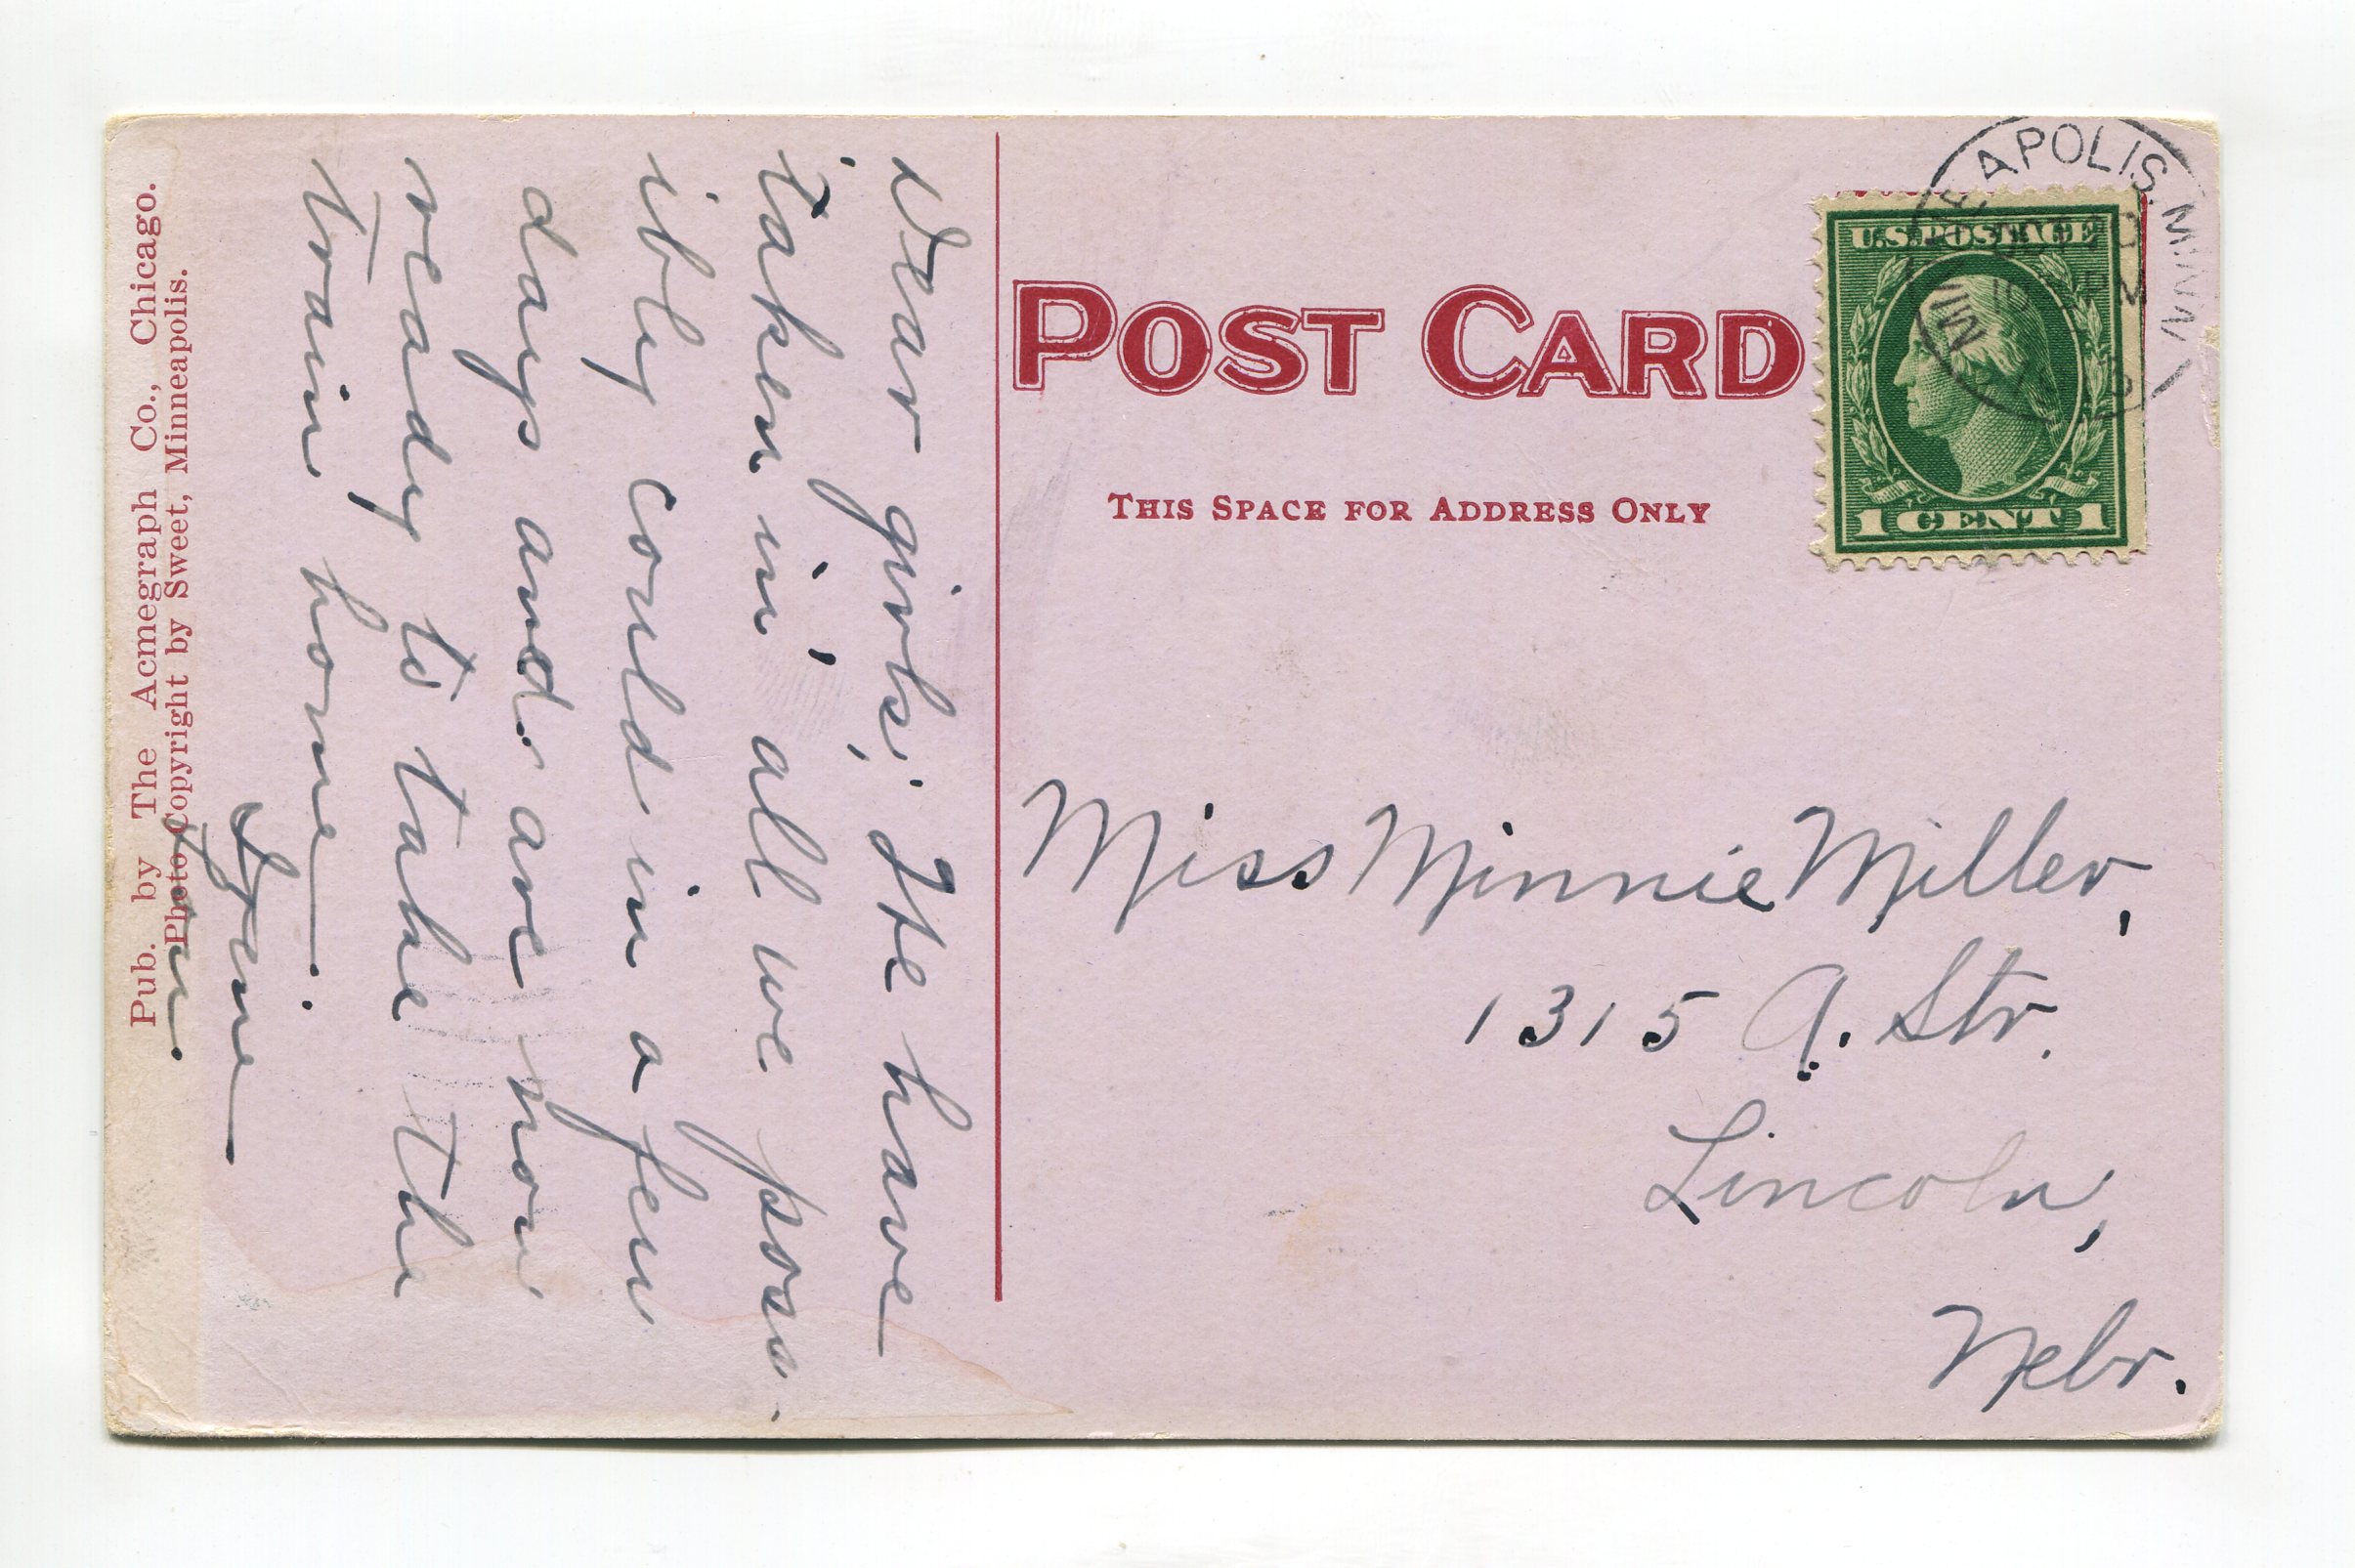 POST CARD
THIS SPACE FOR ADDRESS ONLY
U.S. POSTAGE
1 CENT 1
APOLIS, MINN
Miss Minnie Miller,
1315 A. Str.
Lincoln,
Nebr.
Dear girls; We have
taken in, all we poss-
ibly could in a few
days and are now
ready to take the
train home.
Pub. by The Acmegraph Co., Chicago.
Photo Copyright by Sweet, Minneapolis.